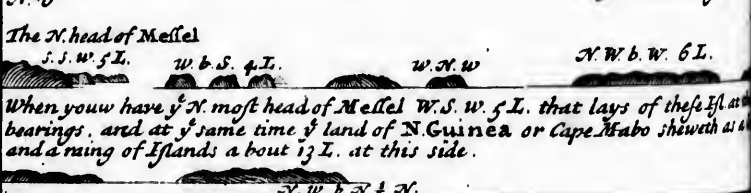 The N. head of Meſſel
S. S. W. 5 L. W. b. S. 4 L. W. N. W N. W b. W. 6 L.
When youw have yͤ N. moſt head of Meſſel W. S. W. 5 L. that lays of theſe Iſl. at
bearings. and at yͤ same time yͤ land of N. Guinea or Cape Mabo sheweth as
and a raing of Iſlands a bout 13 L. at this side.
N. W. b. N ½ N.